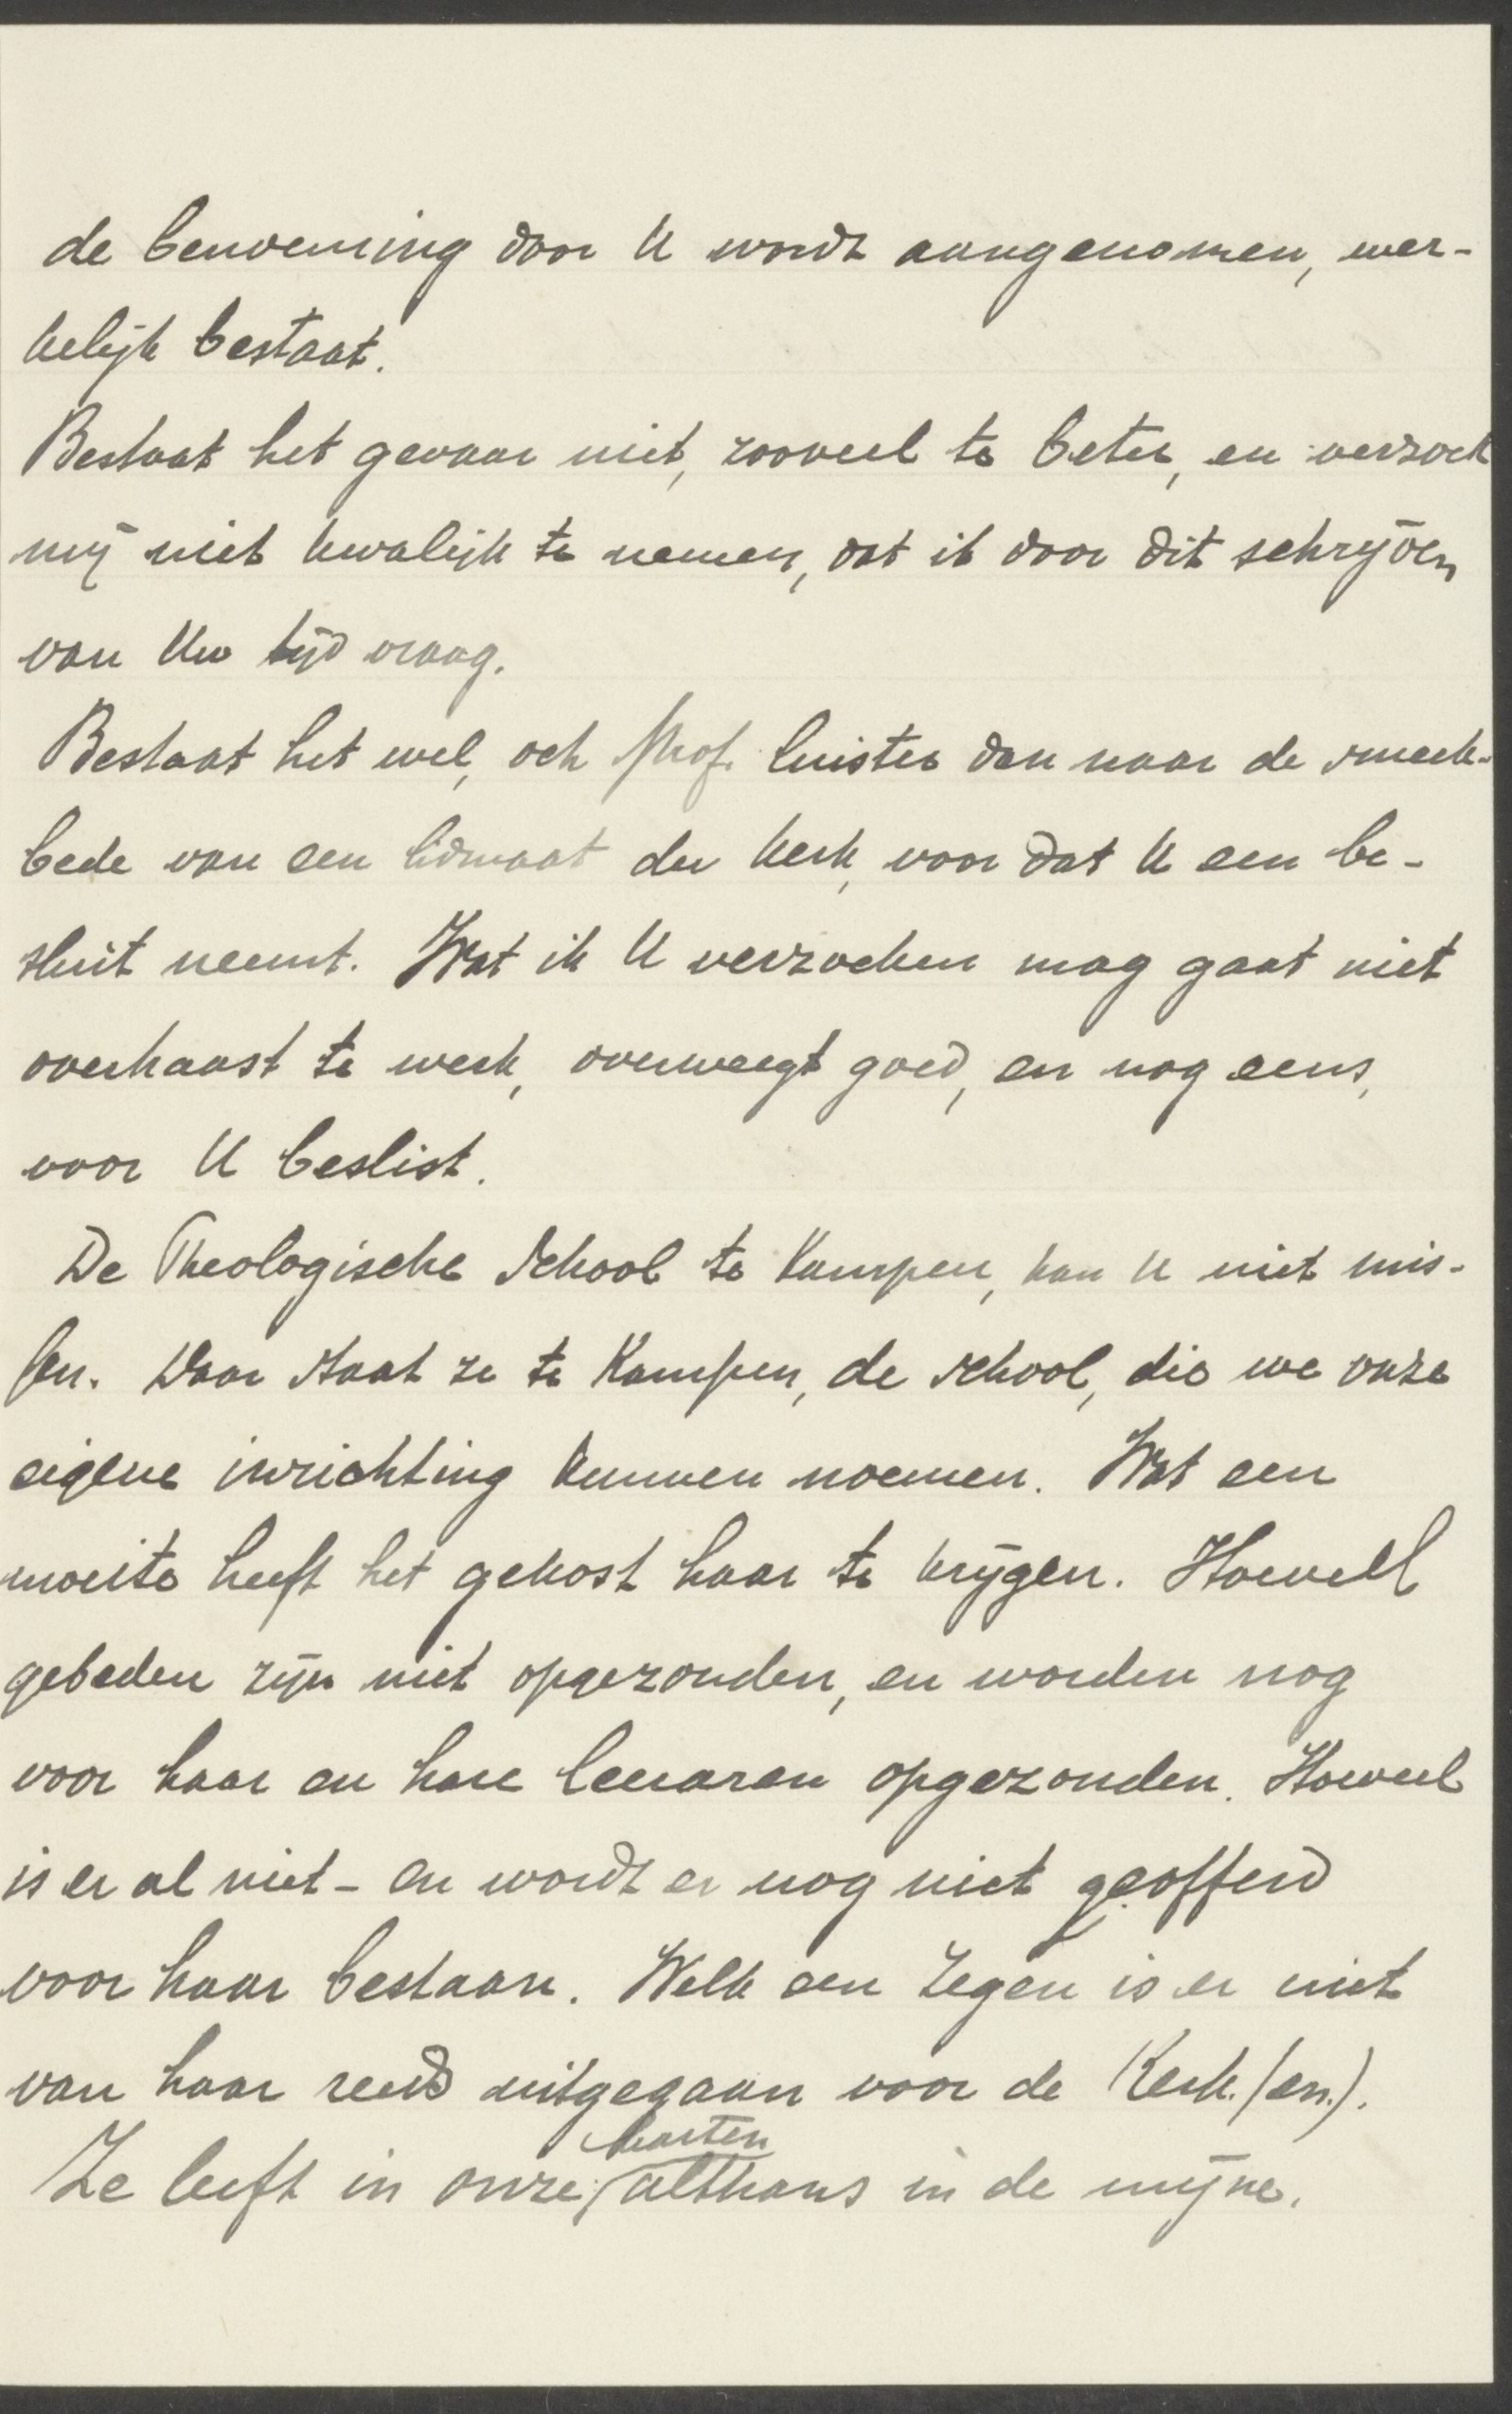 de benoeming door U wordt aangenomen, wer-
kelijk bestaat.
Bestaat het gevaar niet, zooveel te beter, en verzoek
mij niet kwalijk te nemen, dat ik door dit schrijven
van Uw tijd vraag.
Bestaat het wel, och Prof. luister dan naar de smeek-
bede van een lidmaat der Kerk, voor dat U een be-
sluit neemt. Wat ik U verzoeken mag gaat niet
overhaast te werk, overweegt goed, en nog eens,
voor U beslist.
De Theologische School te Kampen, kan U niet mis-
sen. Daar staat ze te Kampen, de school, die we onze
eigene inrichting kunnen noemen. Wat een
moeite heeft het gekost haar te krijgen. Hoeveel
gebeden zijn niet opgezonden, en worden nog
voor haar en hare leeraren opgezonden. Hoeveel
is er al niet - en wordt er nog niet geofferd
voor haar bestaan. Welk een zegen is er niet
van haar reeds uitgegaan voor de Kerk.(en.).
harten
Ze leeft in onze, althans in de mijne.